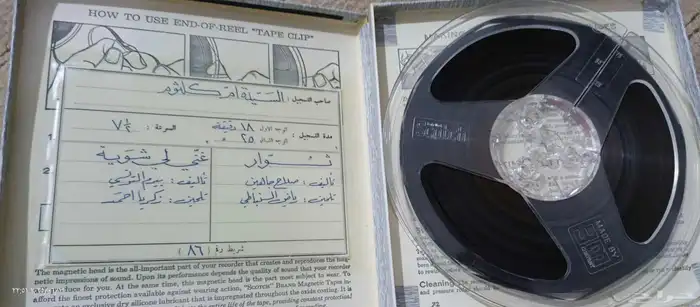 HOW TO USE END-OF-REEL "TAPE CLIP"
صاحب التسجيل : السيدة ام كلثوم
مدة التسجيل : الوجه الاول ١٨ دقيقة السرعة : ٧ ½
الوجه الثاني ٢٥ "
ثوار
تأليف : صلاح جاهين
تلحين : رياض السنباطي
غنى لي شوية
تأليف : بيرم التونسي
تلحين : زكريا احمد
شريط رقم ( ٨٦ )
The magnetic head is the all-important part of your recorder that creates and reproduces the mag-
netic impressions of sound. Upon its performance depends the quality of sound that your recorder
for you. At the same time, this magnetic head is the part most subject to wear. To
afford the finest protection available against wearing action, "SCOTCH" BRAND Magnetic Tapes
exclusive dry silicone lubricant that is impregnated throughout the oxide coating. It is
Scotch
MADE BY
3M
COMPANY
Cleaning
72